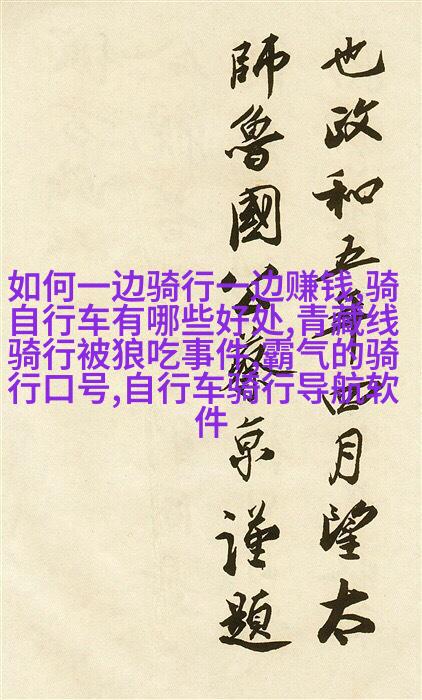 也政和五年四月望太
師魯國公蔡京謹題
如何一边骑行一边赚钱,骑
自行车有哪些好处,青藏线
骑行被狼吃事件,霸气的骑
行口号,自行车骑行导航软
件